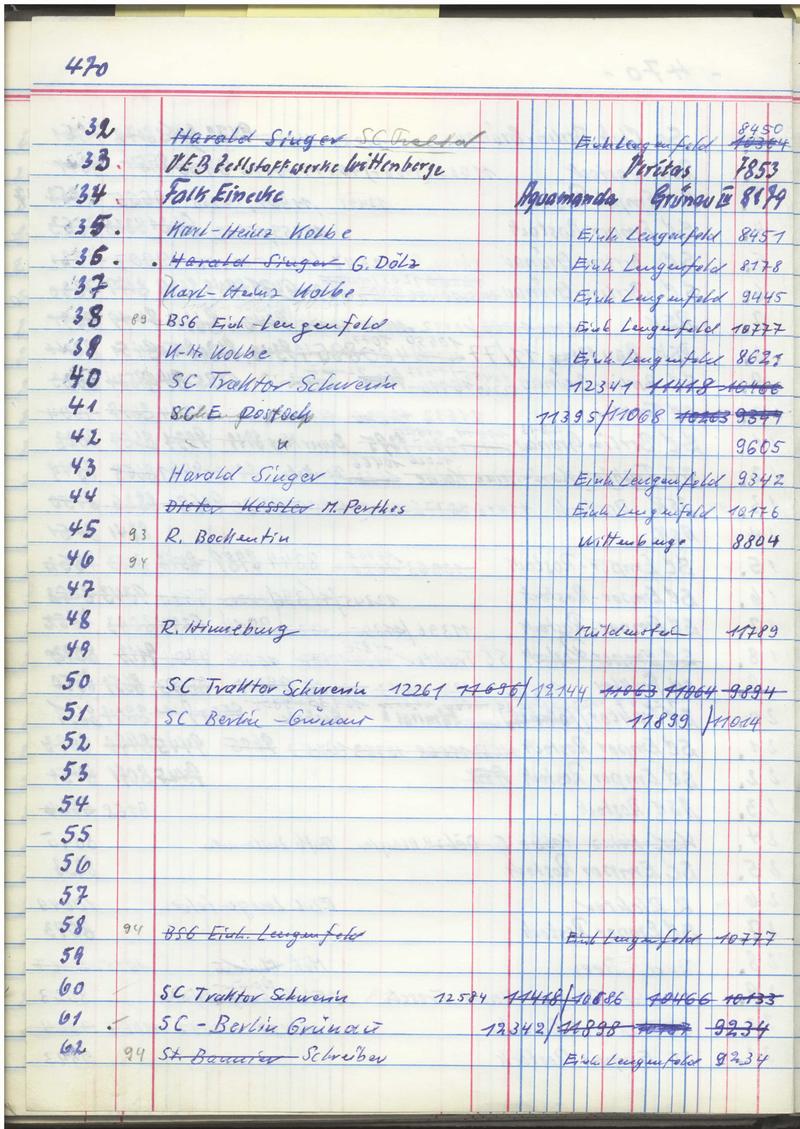 470
8450
32 Harald Singer SC Traktor Einh. Lengenfeld 10304
33. VEB Zellstoffwerke Wittenberge Veritas 7853
34. Falk Einecke Aquamanda Grünau III 8179
35. Karl-Heinz Kolbe Einh. Lengenfeld 8451
36. . Harald Singer G. Dölz Einh. Lengenfeld 8178
37 Karl-Heinz Kolbe Einh. Lengenfeld 9445
38 89 BSG Einh.-Lengenfeld Einh. Lengenfeld 10777
39 K-H. Kolbe Einh. Lengenfeld 8621
40 SC Traktor Schwerin 12341 11418 10466
41 SC E Rostock 11395/11068 10263 9344
42 " 9605
43 Harald Singer Einh. Lengenfeld 9342
44 Dieter Kessler M. Perthes Einh. Lengenfeld 10176
45 93 R. Bochentin Wittenberge 8804
46 94
47
48 R. Hinneburg Muldenstein 11789
49
50 SC Traktor Schwerin 12261 11696/12144 11063 11064 9894
51 SC Berlin-Grünau 11899 /11014
52
53
54
55
56
57
58 94 BSG Einh. Lengenfeld Einh. Lengenfeld 10777
59
60 SC Traktor Schwerin 12584 11418/10686 10466 10133
61 SC-Berlin Grünau 12342/11898 9234
62 94 St. Bannier Schreiber Einh. Lengenfeld 9234